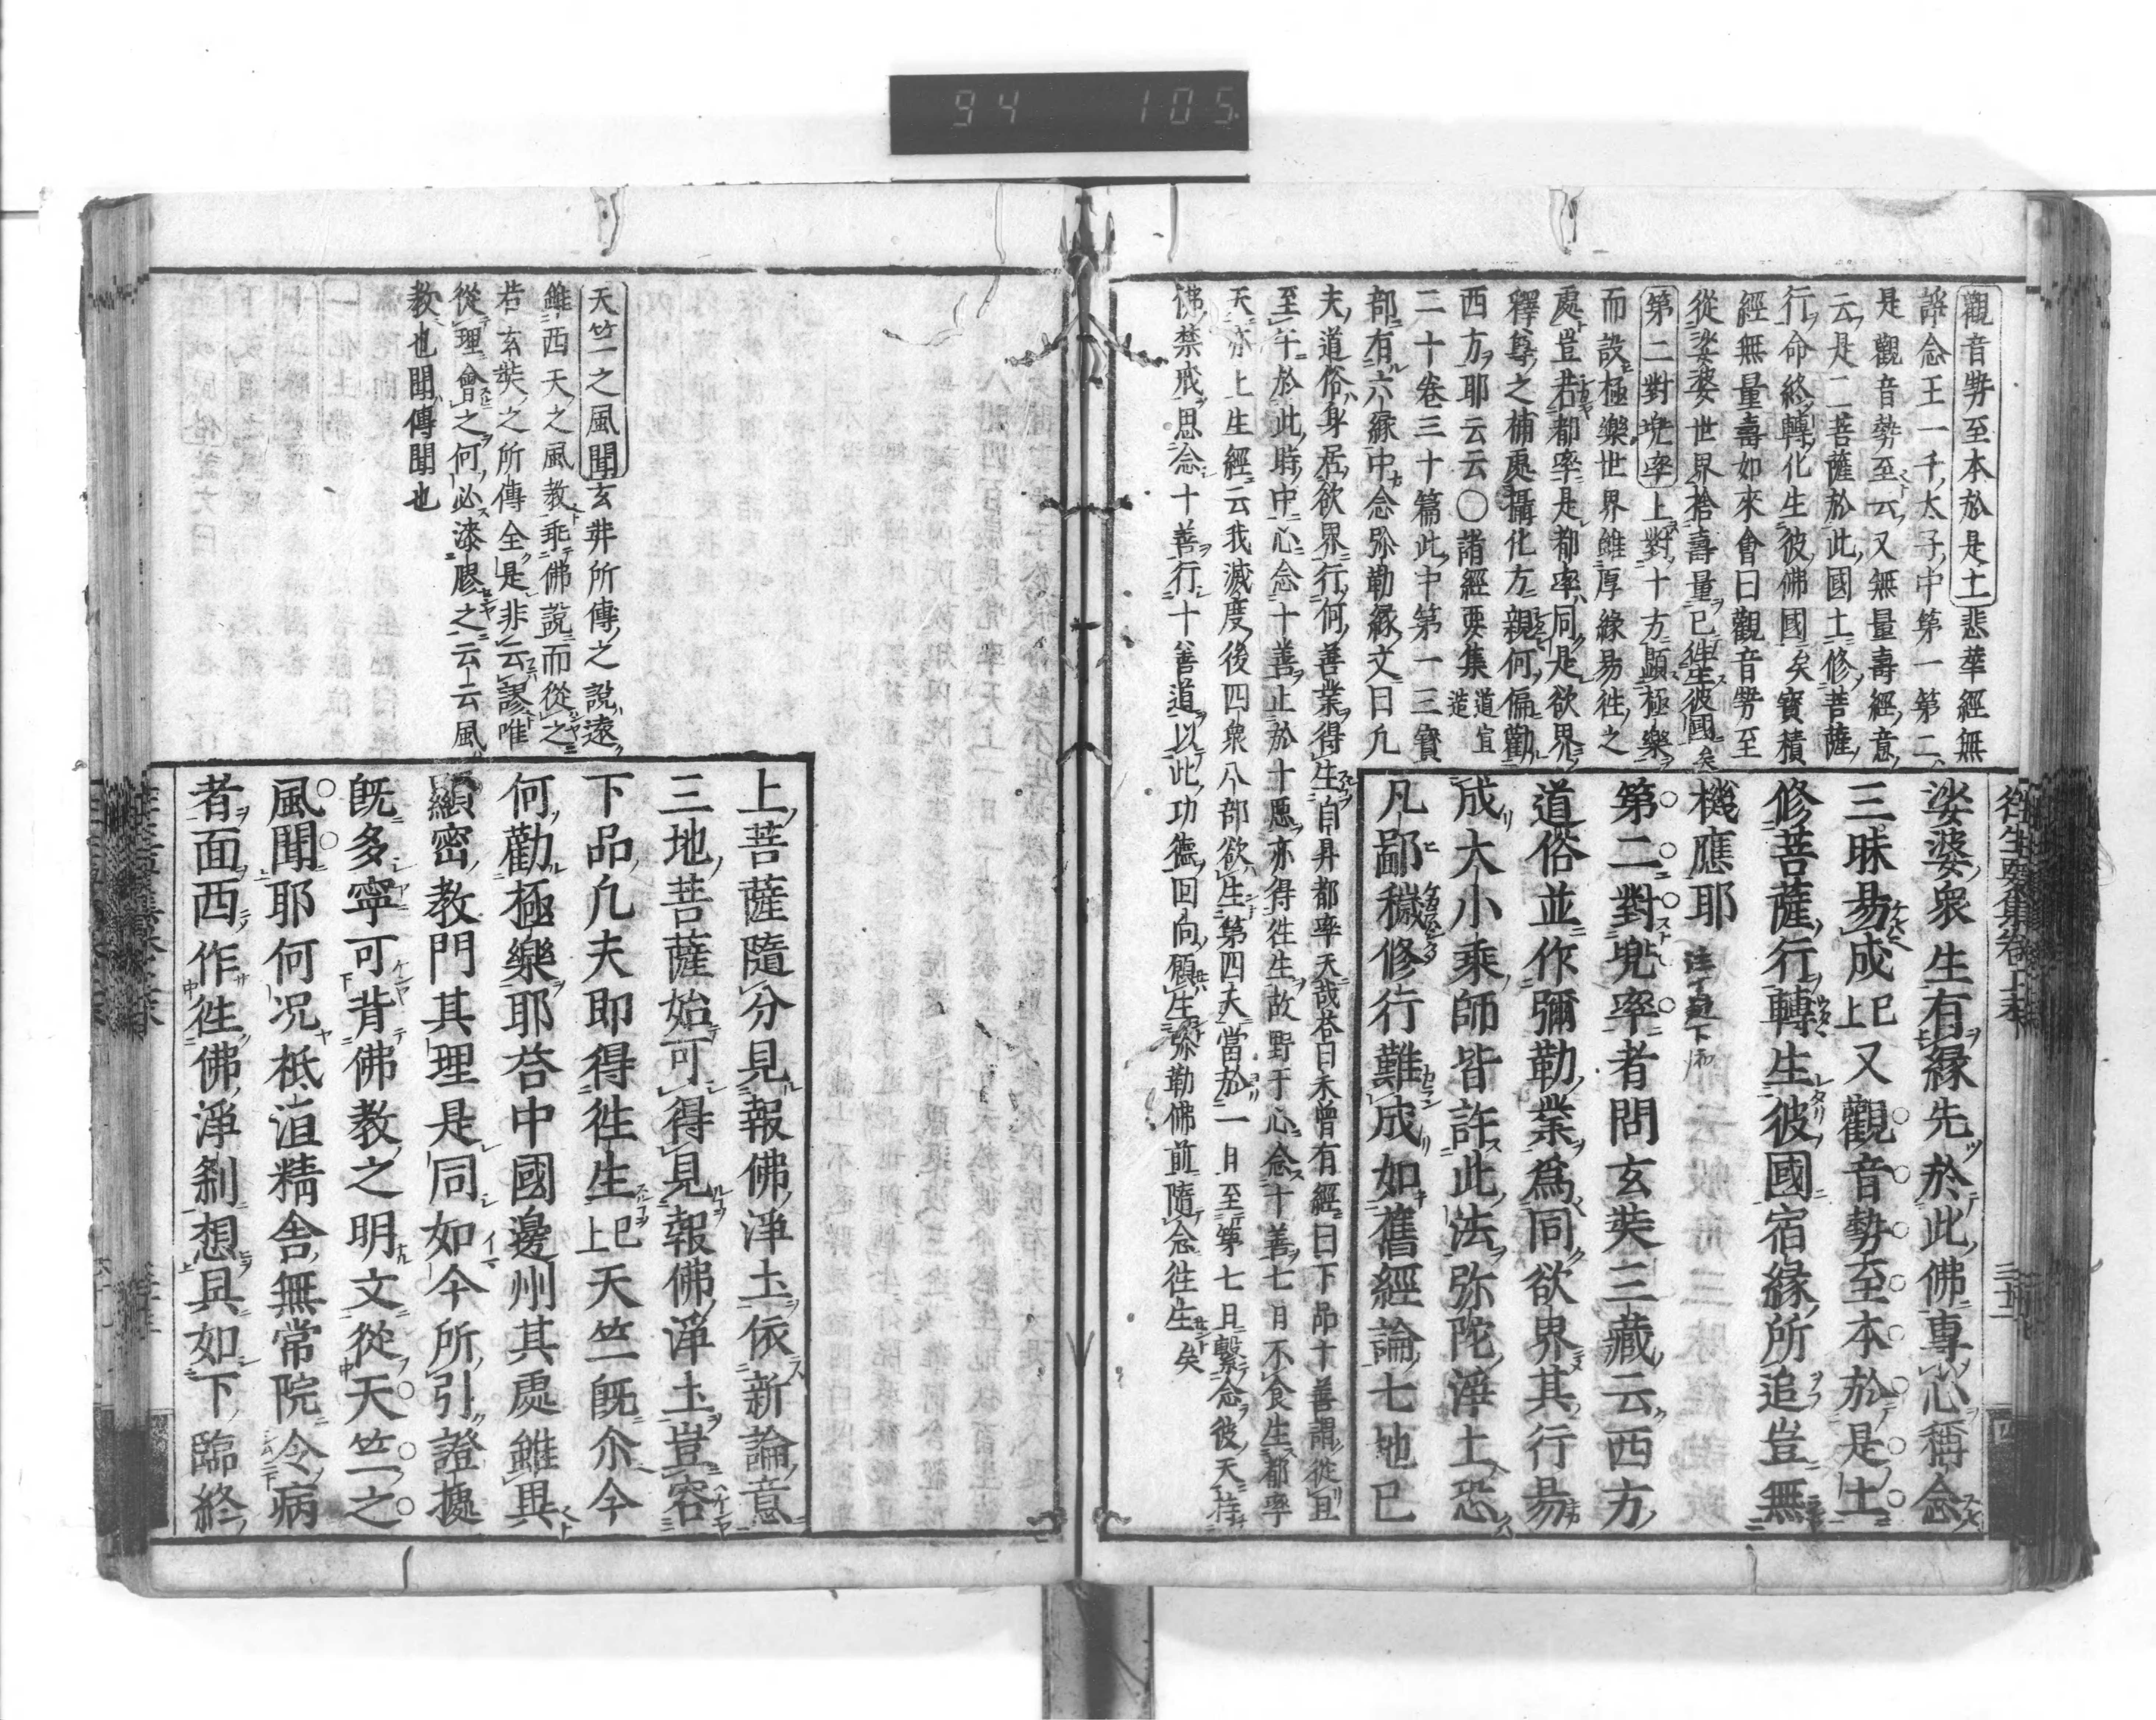 94 105
觀音勢至本於是土悲華經無
諍念王一千太子中第一第二
是觀音勢至云又無量壽經意
云是二菩薩於此國土修菩薩
行命終轉化生彼佛國矣寳積
經無量壽如來會曰觀音勢至
從娑婆世界捨壽量已徃生彼國矣
第二對兜率上對十方顯極樂
而設極樂世界雖厚緣易徃之
處豈若都率是都率同是欲界
釋尊之補處攝化方親何偏勸
西方耶云云○諸經要集道宣造
二十卷三十篇此中第一三寳
部有六緣中念弥勒緣文曰凢
夫道俗身居欲界行何善業得生自昇都率天哉荅曰未曾有經曰下品十善謂從旦
至午於此時中心念十善止於十惡亦得徃生故野于心念十善七日不食生都率
天亦上生經云我滅度後四衆八部欲生第四天當於一日至第七日繫念彼天持
佛禁戒思念十善行十善道以此功德回向願生弥勒佛前隨念徃生矣
徃生要集卷上末
娑婆衆生有緣先於此佛專心稱念
三昧易成已上又觀音勢至本於是土
修菩薩行轉生彼國宿緣所追豈無
機應耶
第二對兜率者問玄奘三藏云西方
道俗並作彌勒業爲同欲界其行易
成大小乘師皆許此法弥陀淨土恐
凡鄙穢修行難成如舊經論七地已
上菩薩隨分見報佛淨土依新論意
三地菩薩始可得見報佛淨土豈容
下品凢夫即得徃生已上天竺既尒今
何勸極樂耶荅中國邊州其處雖異
顯密教門其理是同如今所引證據
既多寧可背佛教之明文從天竺之
風聞耶何況祇洹精舍無常院令病
者面西作徃佛淨刹想具如下臨終
天竺之風聞玄弉所傳之說遠
雖西天之風教乖佛說而從之
若玄奘之所傳全是非云謬唯
從理會之何必漆膠之云云風
教也聞傳聞也